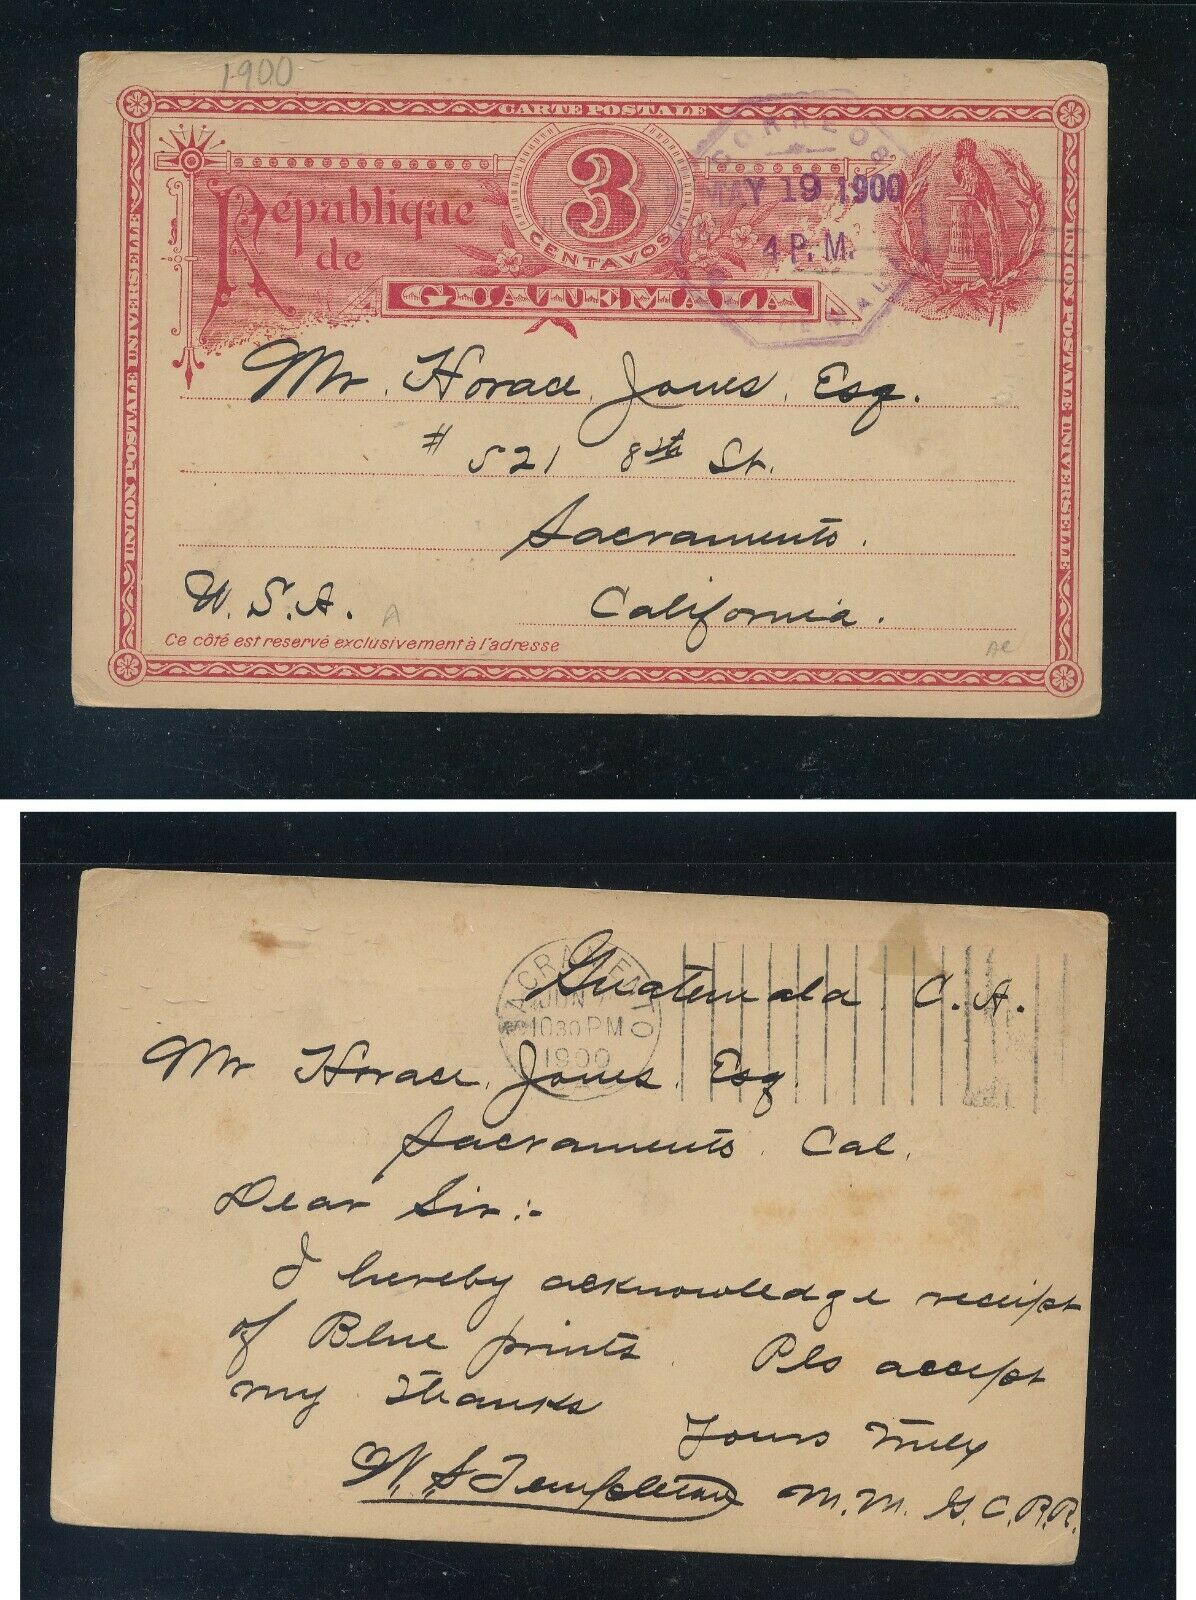 1900
CARTE POSTALE
République
de
3
CENTAVOS
GUATEMALA
UNION POSTALE UNIVERSELLE
UNION POSTALE UNIVERSELLE
CORREOS
MAY 19 1900
4 P.M.
Mr. Horace Jones, Esq.
# 521 8th St.
Sacramento.
California.
U.S.A.
A
Ce côté est reservé exclusivement à l'adresse
SACRAMENTO
JUN
1030 PM
1900
Guatemala, C.A.
Mr Horace Jones, Esq
Sacramento Cal.
Dear Sir:-
I hereby acknowledge receipt
of Blue prints. Pls accept
my thanks
Yours Truly
W. S. Templeton M.M. G.C.R.R.